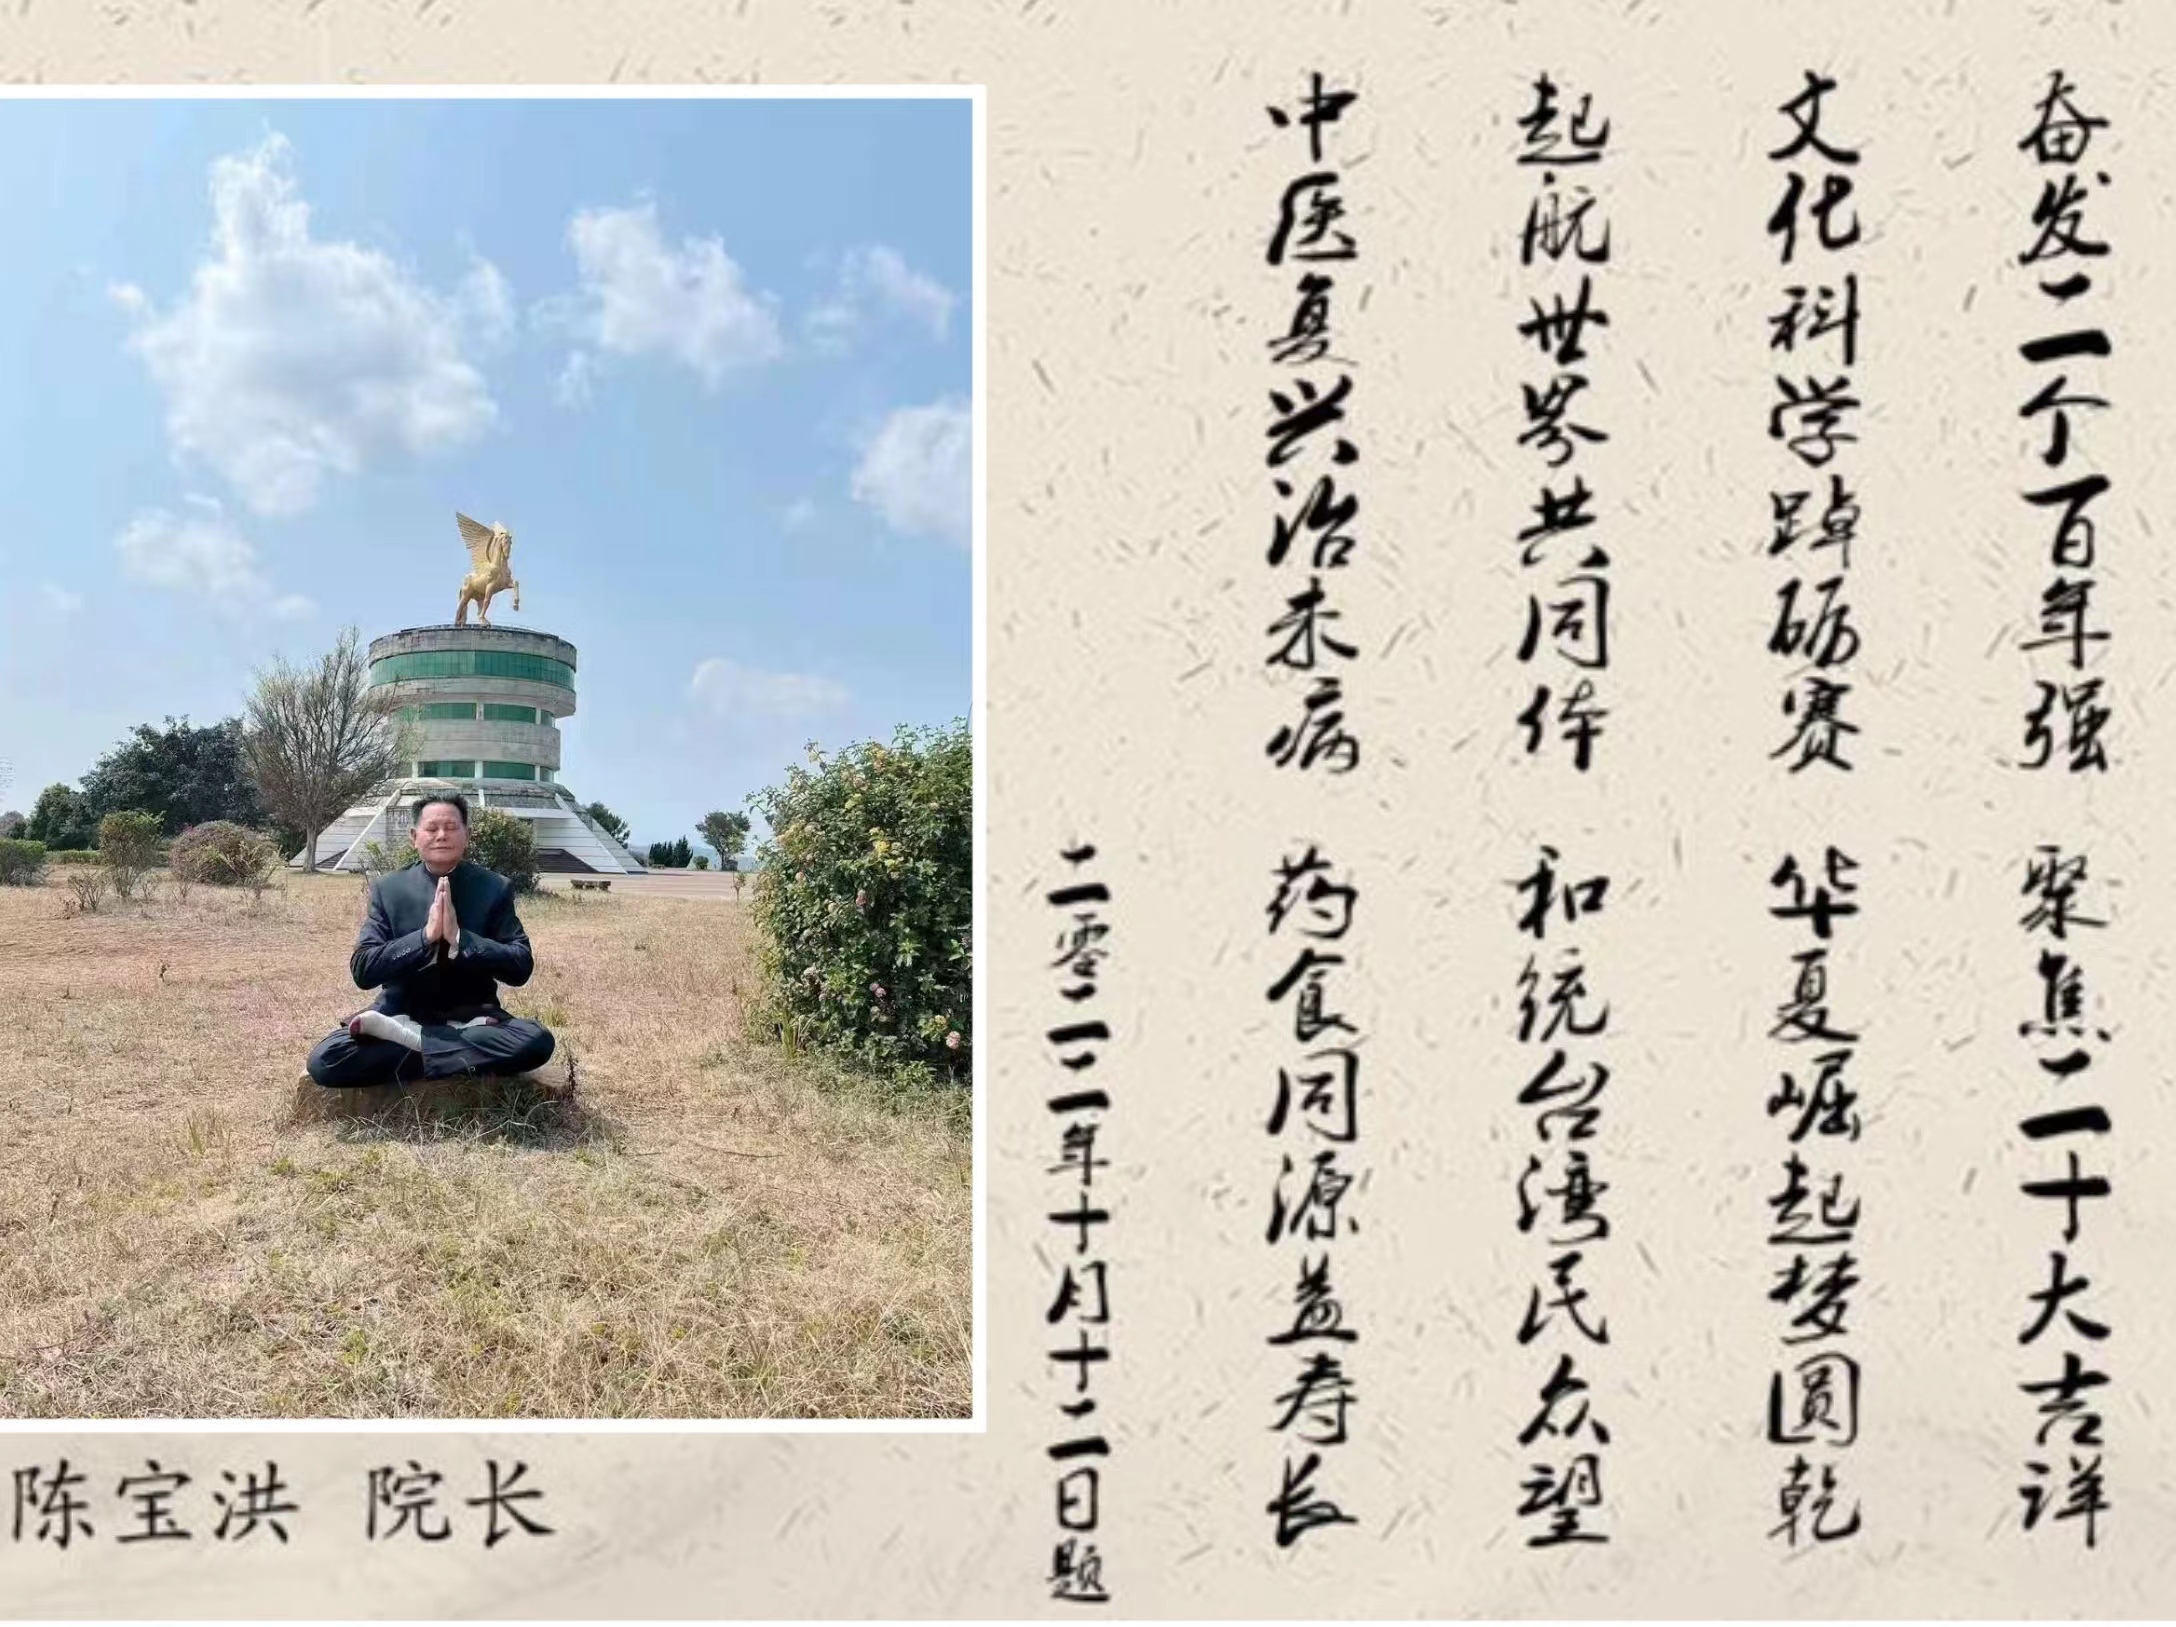 奋发二个百年强 聚焦二十大吉祥
文化科学踔砺赛 华夏崛起梦圆乾
起航世界共同体 和统台湾民众望
中医复兴治未病 药食同源益寿长
二零二二年十月十二日题
陈宝洪 院长